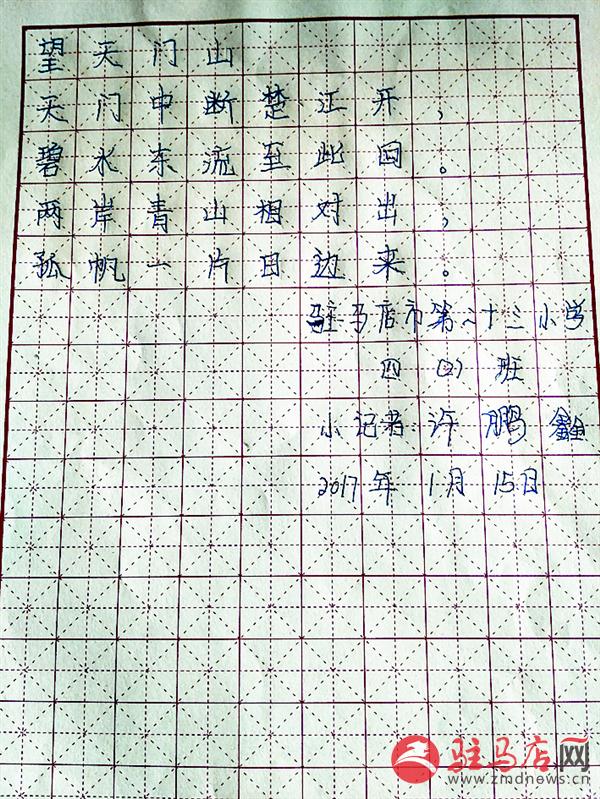 望天门山
天门中断楚江开，
碧水东流至此回。
两岸青山相对出，
孤帆一片日边来。
驻马店市第二十三小学
四（2）班
小记者：许鹏鑫
2017年1月15日
驻马店网
www.zmdnews.cn